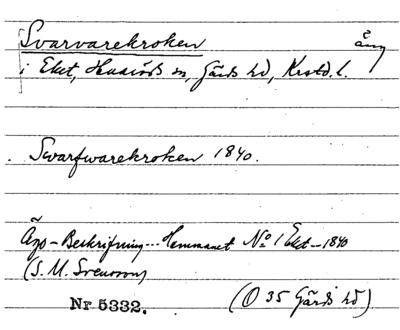 Svarvarekroken äng
i Eket, Huaröds sn, Gärds hd, Krstd. l.
Swarfwarekroken 1840.
Ägo-Beskrifning... Hemmanet No 1 Eket - 1840
(S. M. Svensson)
Nr 5332. (O 35 Gärds hd)